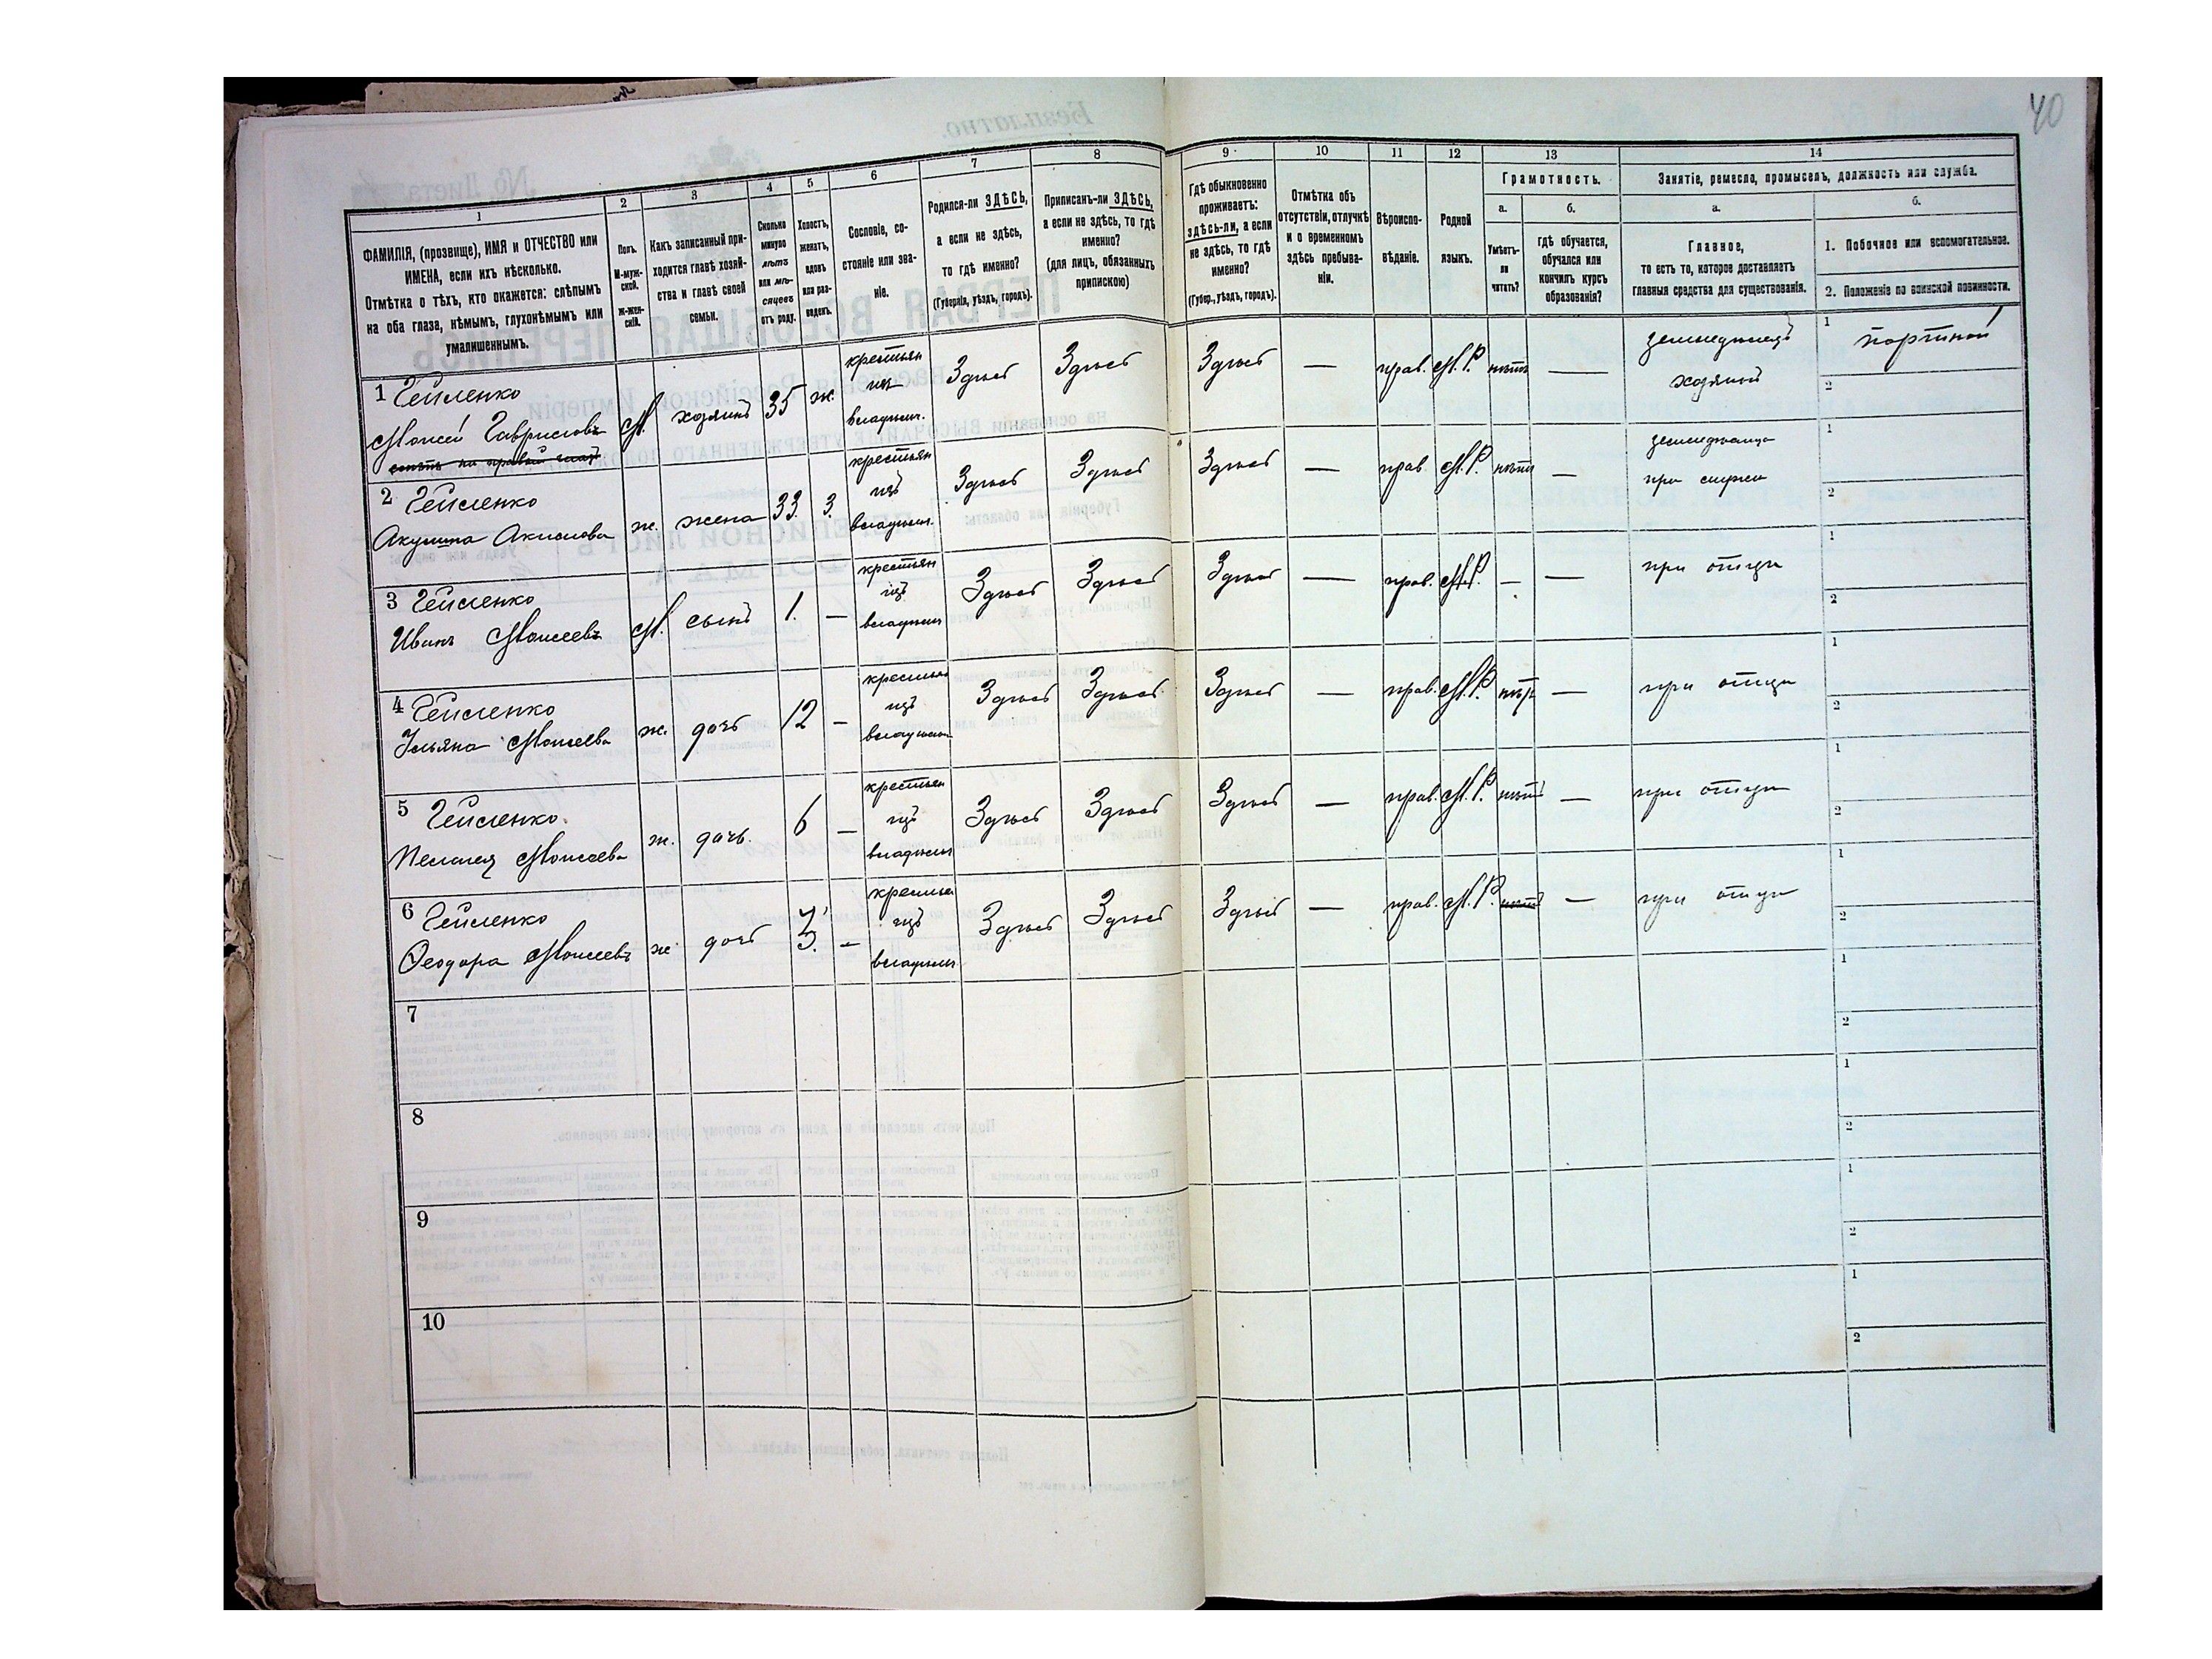 40
1
2
3
4
5
6
7
8
9
10
11
12
13
14
ФАМИЛІЯ, (прозвище), ИМЯ и ОТЧЕСТВО или
ИМЕНА, если ихъ нѣсколько.
Отмѣтка о тѣхъ, кто окажется: слѣпымъ
на оба глаза, нѣмымъ, глухонѣмымъ или
умалишеннымъ.
Полъ.
М-муж-
ской.
Ж-жен-
скій.
Какъ записанный при-
ходится главѣ хозяй-
ства и главѣ своей
семьи.
Сколько
минуло
лѣтъ
или мѣ-
сяцевъ
отъ роду.
Холостъ,
женатъ,
вдовъ
или раз-
веденъ.
Сословіе, со-
стояніе или зва-
ніе.
Родился-ли ЗДѢСЬ,
а если не здѣсь,
то гдѣ именно?
(Губернія, уѣздъ, городъ).
Приписанъ-ли ЗДѢСЬ,
а если не здѣсь, то гдѣ
именно?
(для лицъ, обязанныхъ
припискою)
Гдѣ обыкновенно
проживаетъ:
здѣсь-ли, а если
не здѣсь, то гдѣ
именно?
(Губер., уѣздъ, городъ).
Отмѣтка объ
отсутствіи, отлучкѣ
и о временномъ
здѣсь пребыва-
ніи.
Вѣроиспо-
вѣданіе.
Родной
языкъ.
Грамотность.
а.
б.
Умѣетъ-
ли
читать?
гдѣ обучается,
обучался или
кончилъ курсъ
образованія?
Занятіе, ремесло, промыселъ, должность или служба.
а.
б.
Главное,
то есть то, которое доставляетъ
главныя средства для существованія.
1. Побочное или вспомогательное.
2. Положеніе по воинской повинности.
1 Гейленко
Моисей Гавриловъ
М. хозяинъ 35 ж. крестьян
изъ
владѣльч.
Здѣсь Здѣсь Здѣсь — прав. М.Р. нѣтъ —
земледѣлецъ
хозяинъ
1 портной
2
2 Гейленко
Акулина Акимова
ж. жена 33. З. крестьян
изъ
владѣльч.
Здѣсь Здѣсь Здѣсь — прав М.Р. нѣтъ —
при мужѣ
1
2
3 Гейленко
Иванъ Моисеевъ
М. сынъ 1. — крестьян
изъ
владѣльч
Здѣсь Здѣсь Здѣсь — прав. М.Р. — —
при отцѣ
1
2
4 Гейленко
Ульяна Моисеева
ж. дочь 12 — крестьян
изъ
владѣльч
Здѣсь Здѣсь Здѣсь — прав. М.Р. нѣтъ —
при отцѣ
1
2
5 Гейленко.
Пелагея Моисеева
ж. дочь. 6 — крестьян
изъ
владѣльч
Здѣсь Здѣсь Здѣсь — прав. М.Р. нѣтъ —
при отцѣ
1
2
6 Гейленко
Ѳеодора Моисеевъ
ж дочь 3. — крестьян
изъ
владѣльч
Здѣсь Здѣсь Здѣсь — прав. М.Р. нѣтъ —
при отцѣ
1
2
7
1
2
8
1
2
9
1
2
10
1
2